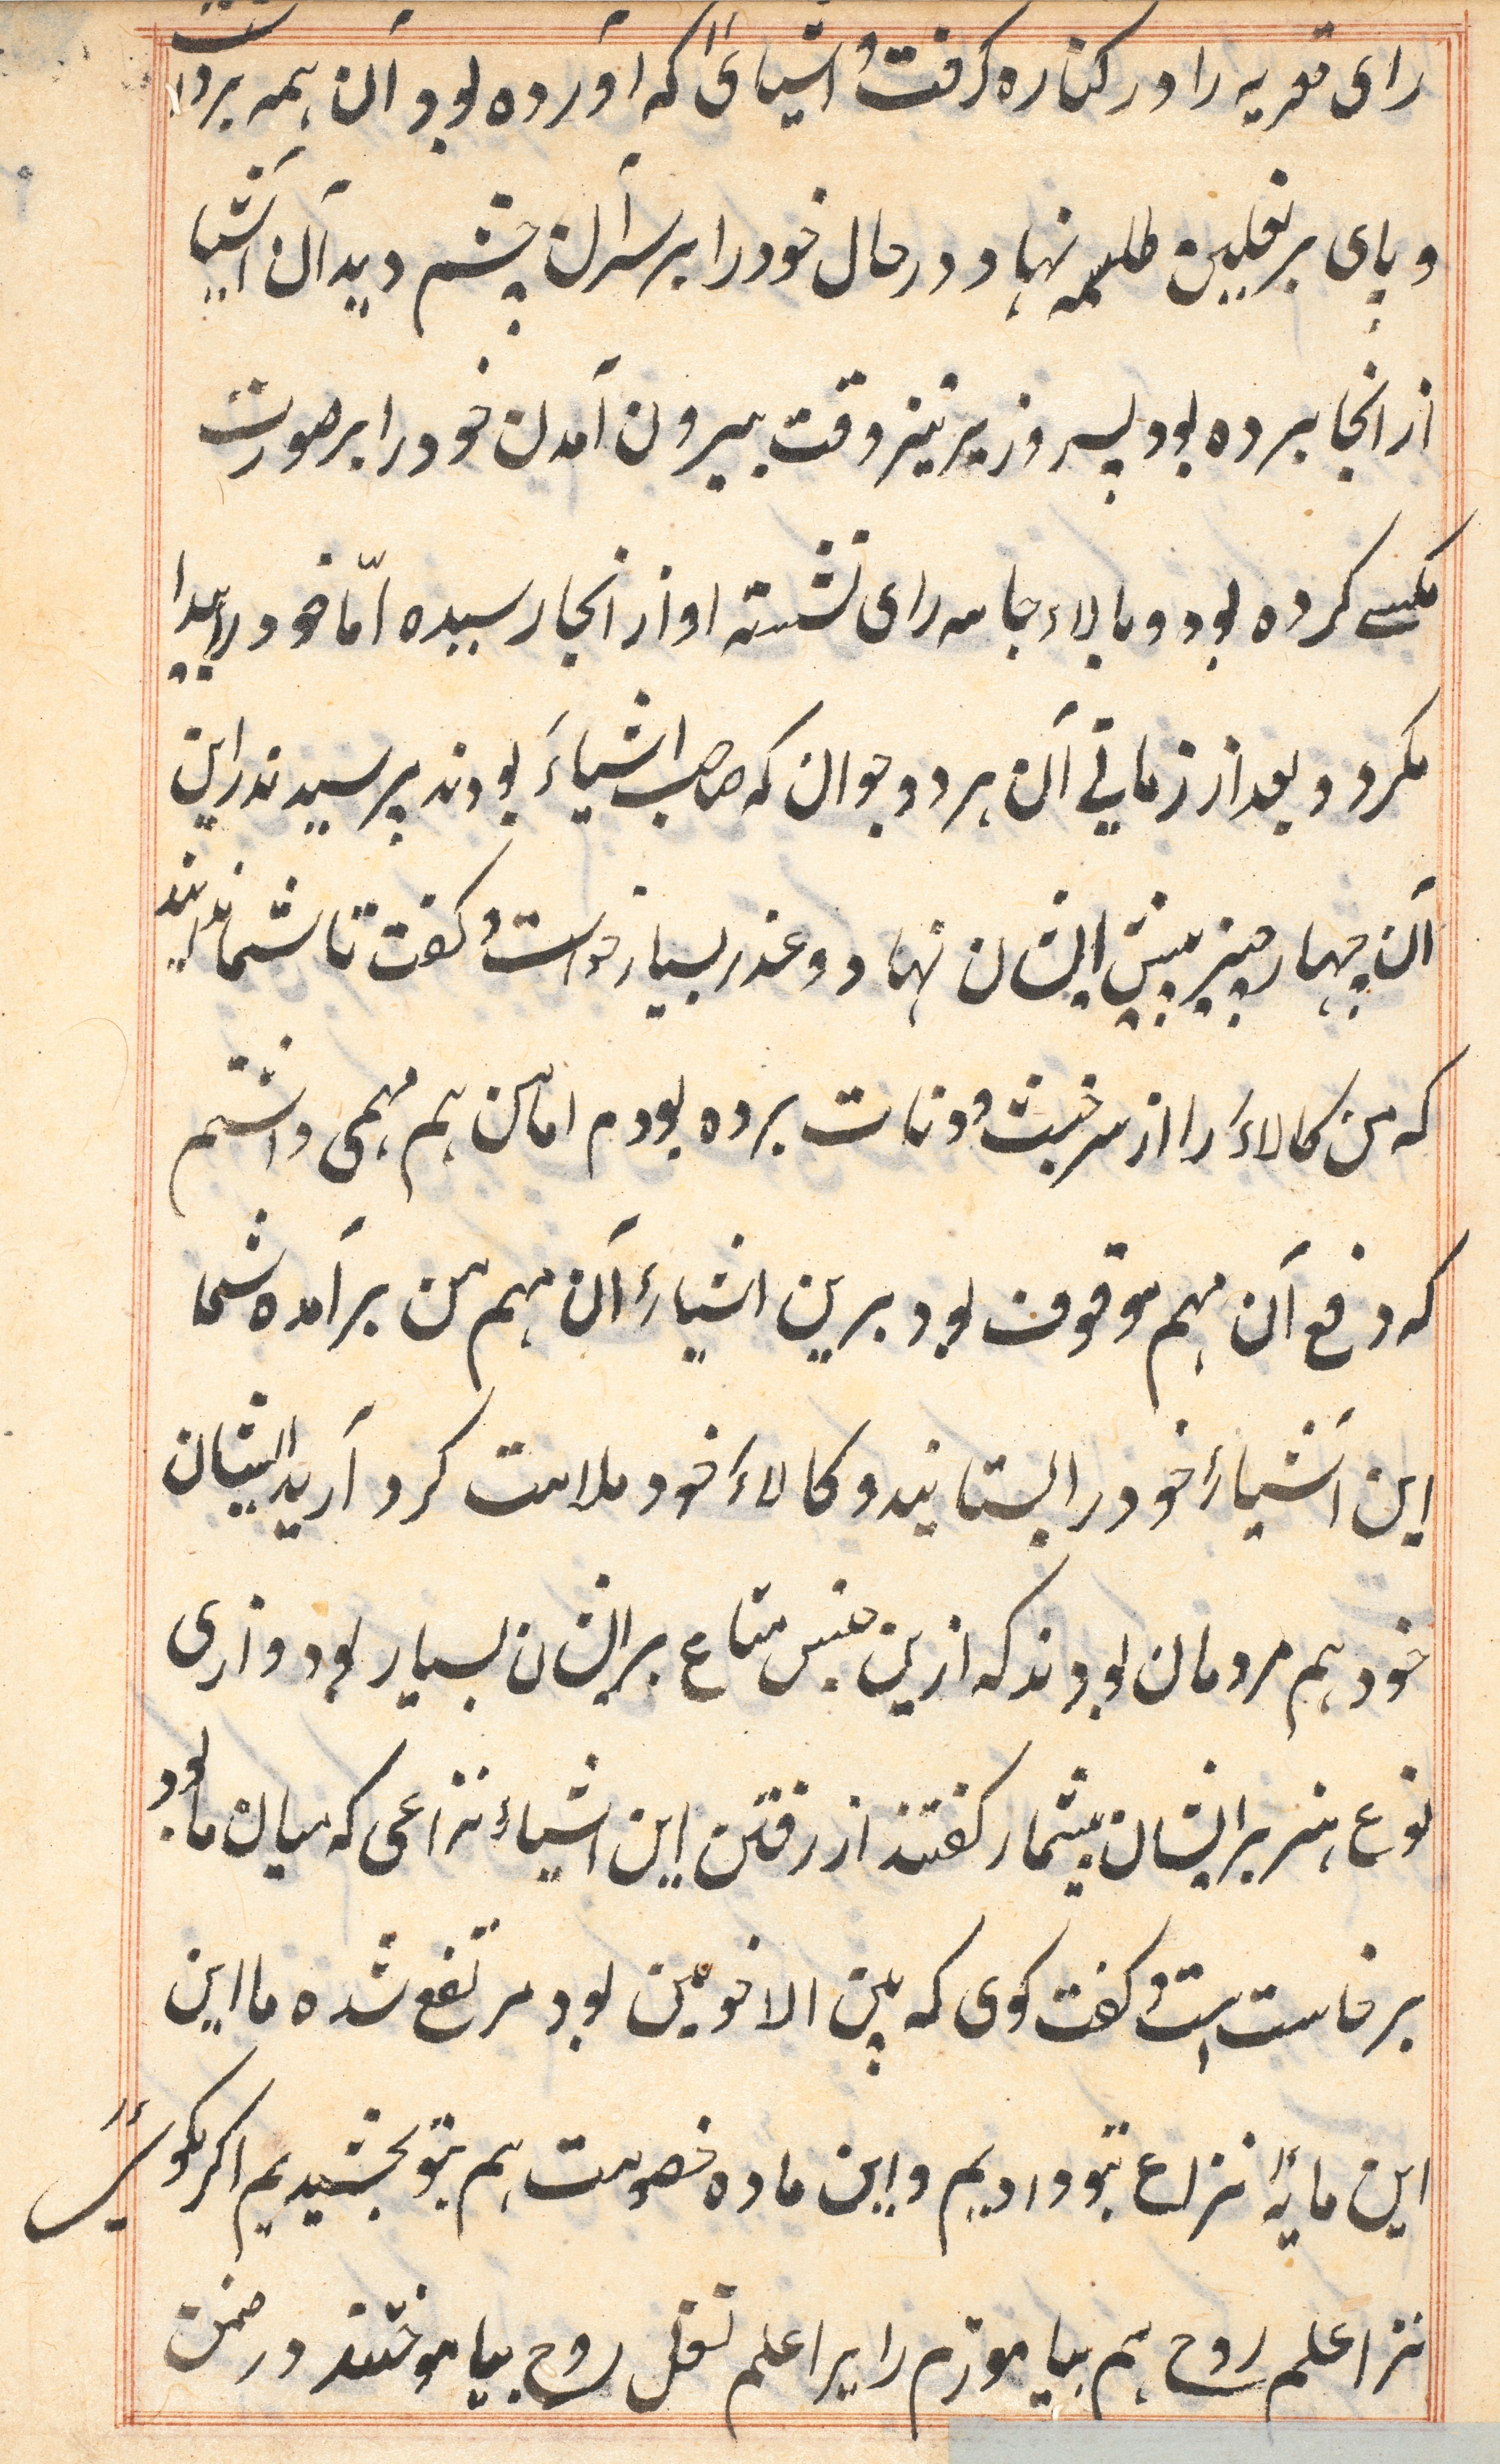 رای قریه را در کناره گرفت و اشیائی که آورده بود آن همه برداشت
و پای بر نعلین طلسمه نهاد و در حال خود را بر سر آن چشم دید آن اشیا
از انجا برده بود پسر وزیر نیز وقت بیرون آمدن خود را بر صورت
مکسے کرده بود و بالاء جامه رای نشسته او از انجا رسیده امّا خود را پیدا
مکرد و بعد از زمانے آن هر دو جوان که صاحب اشیاء بودند پرسیدند راین
آن چهار چیز پیش ایشان نهاد و عذر بسیار خواست و کفت تا شما ندانید
که من کالاء را از سر خبث و دنات برده بودم اما من هم مهمی داشتم
که دفع آن مهم موقوف بود برین اشیاء آن مهم من برآمده شما
این اشیاء خود را بستانید و کالاء خود ملامت کرد آرید ایشان
خود هم مردمان بودند که ازین جنس متاع بر ایشان بسیار بود و ازی
نوع هنر بر ایشان بیشمار کفتند از رفتن این اشیاء نزاعی که میان ما بود
برخاست است و کفت کوی که بین الاخوین بود مرتفع شده ما این
این مایهٔ نزاع بتو دادیم و این ماده خصومت هم بتو بخشیدیم اکر بکوئے
ترا علم روح هم بیاموزم رایرا علم نقل روح بیاموختند در ضمن